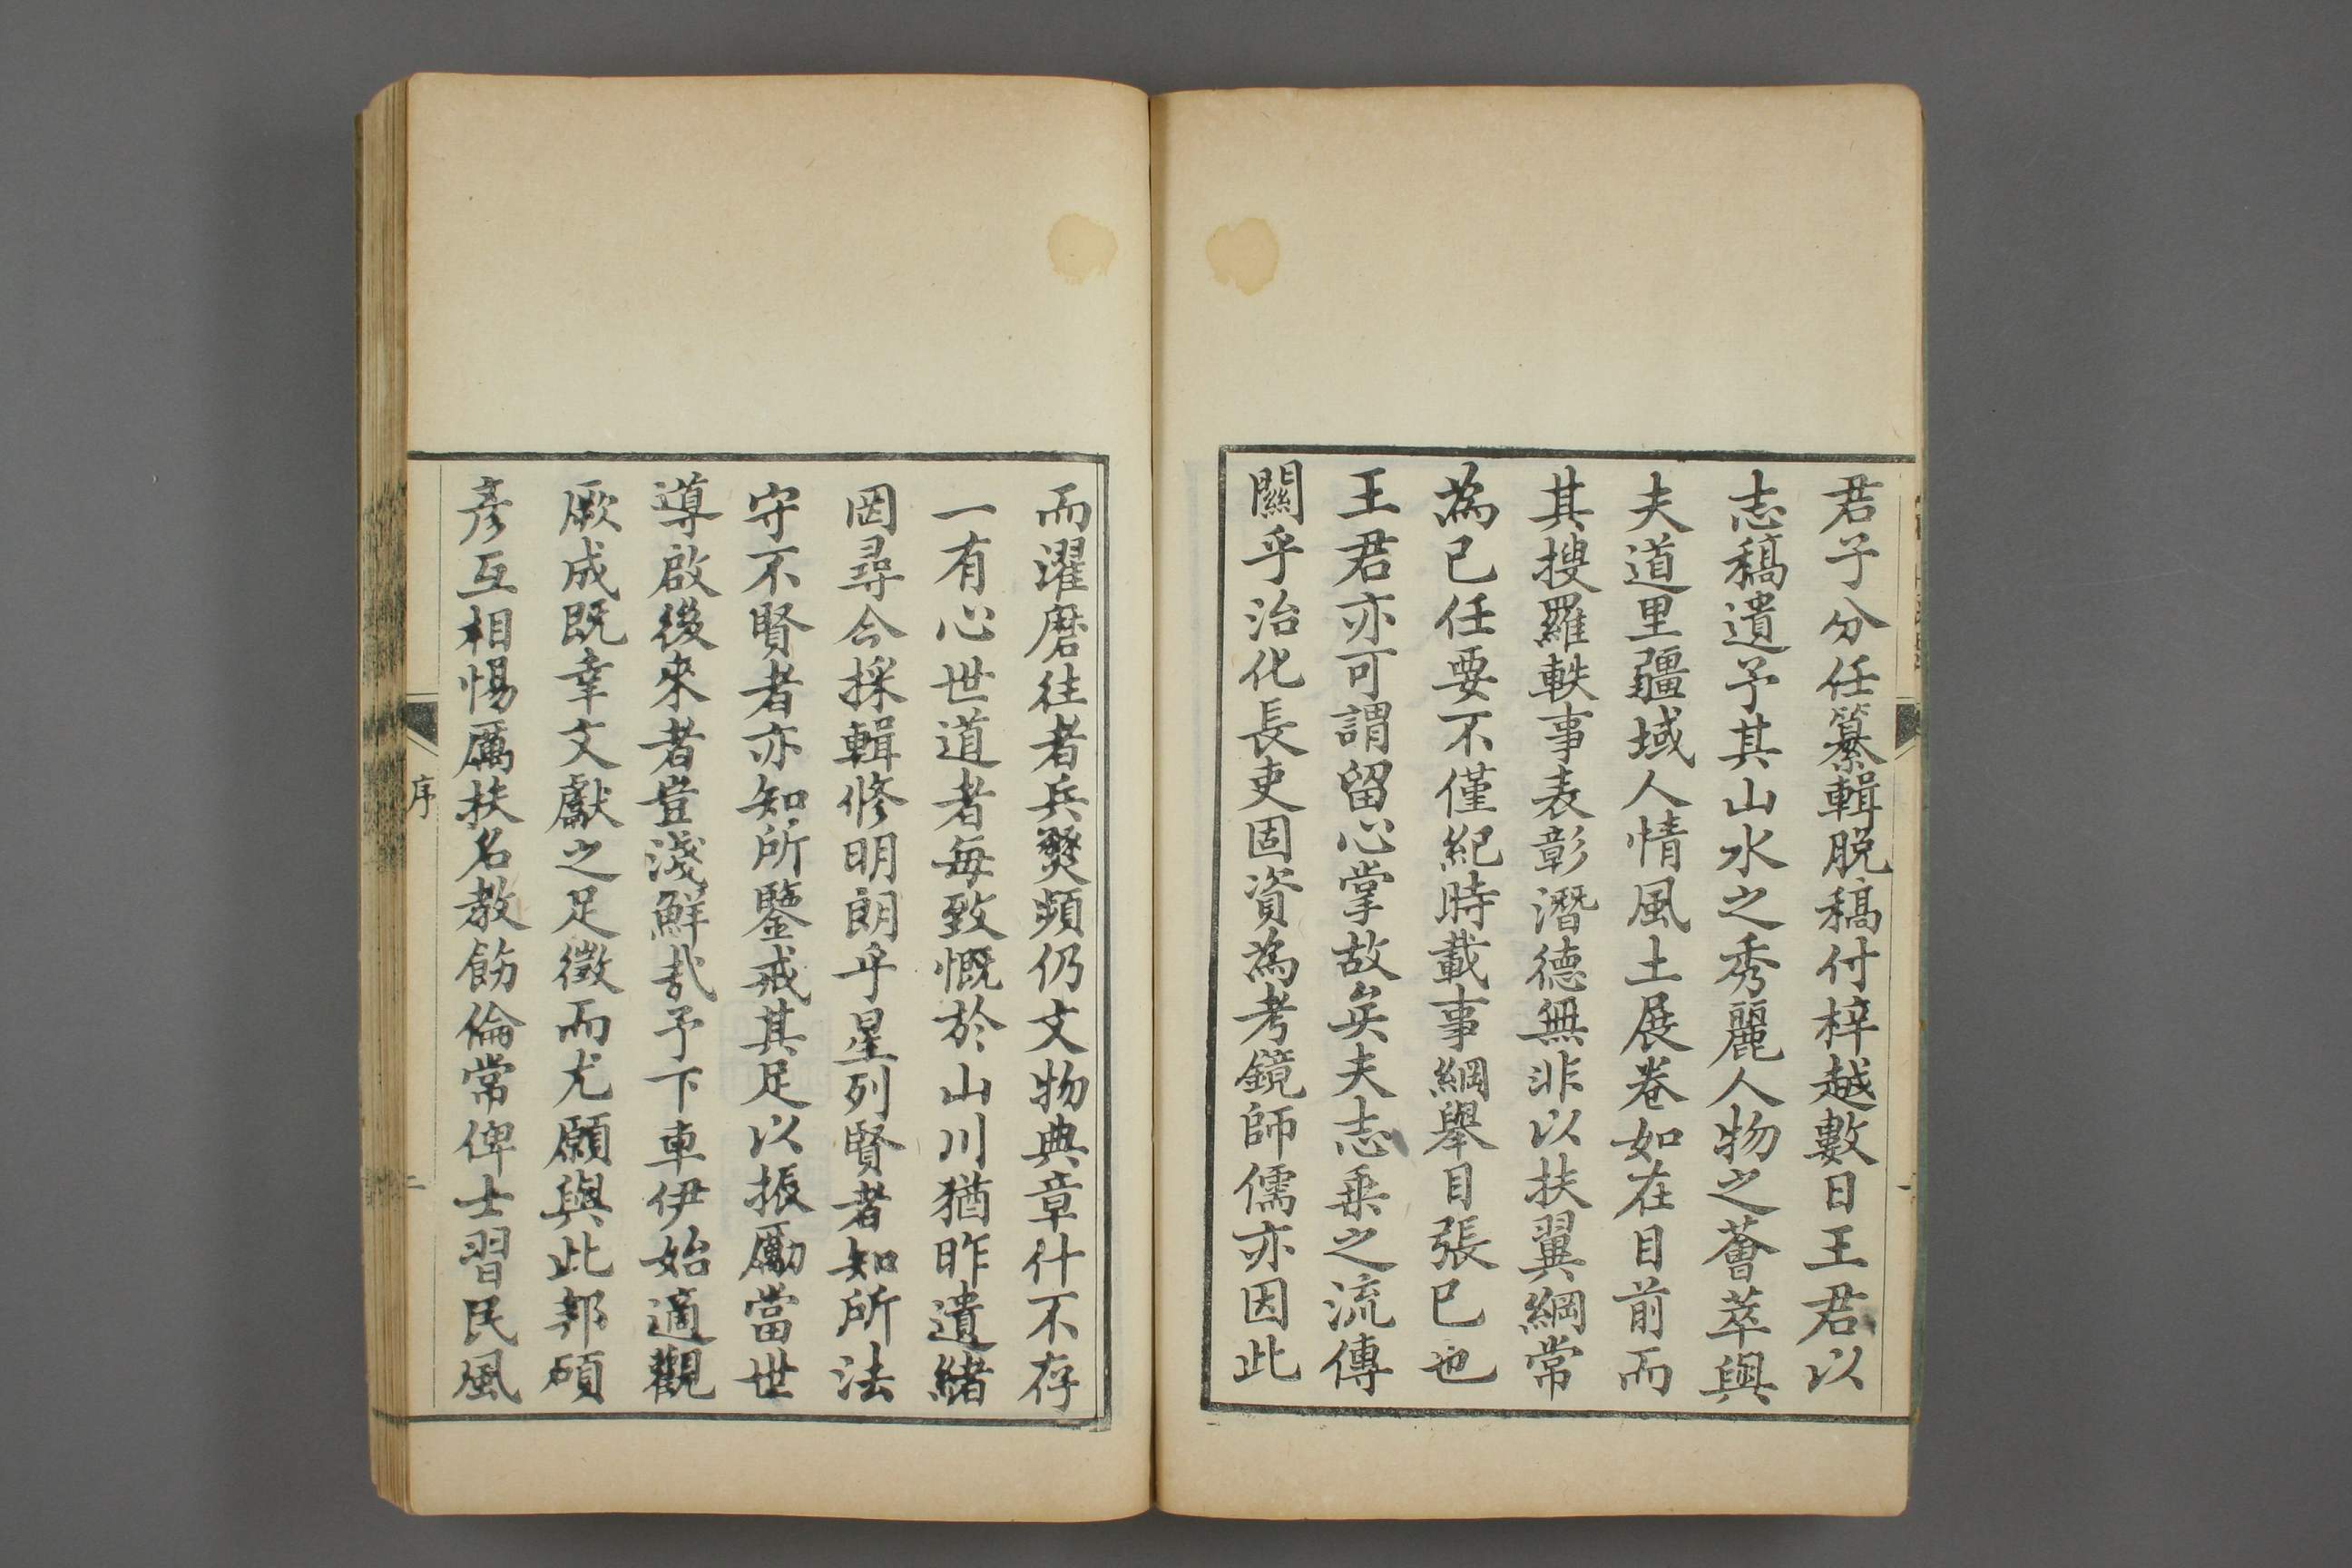 君子分任纂輯脱稿付梓越數日王君以
志稿遺予其山水之秀麗人物之薈萃與
夫道里疆域人情風土展卷如在目前而
其搜羅軼事表彰潛德無非以扶翼綱常
為已任要不僅紀時載事綱舉目張已也
王君亦可謂留心掌故矣夫志乗之流傳
關乎治化長吏固資為考鏡師儒亦因此
而濯磨往者兵燹頻仍文物典章什不存
一有心世道者每致慨於山川猶昨遺緒
罔尋今採輯修明朗乎星列賢者知所法
守不賢者亦知所鑒戒其足以振勵當世
導啟後來者豈淺鮮哉予下車伊始適觀
厥成既幸文獻之足徵而尤願與此邦碩
彥互相惕厲扶名教飭倫常俾士習民風
序
二